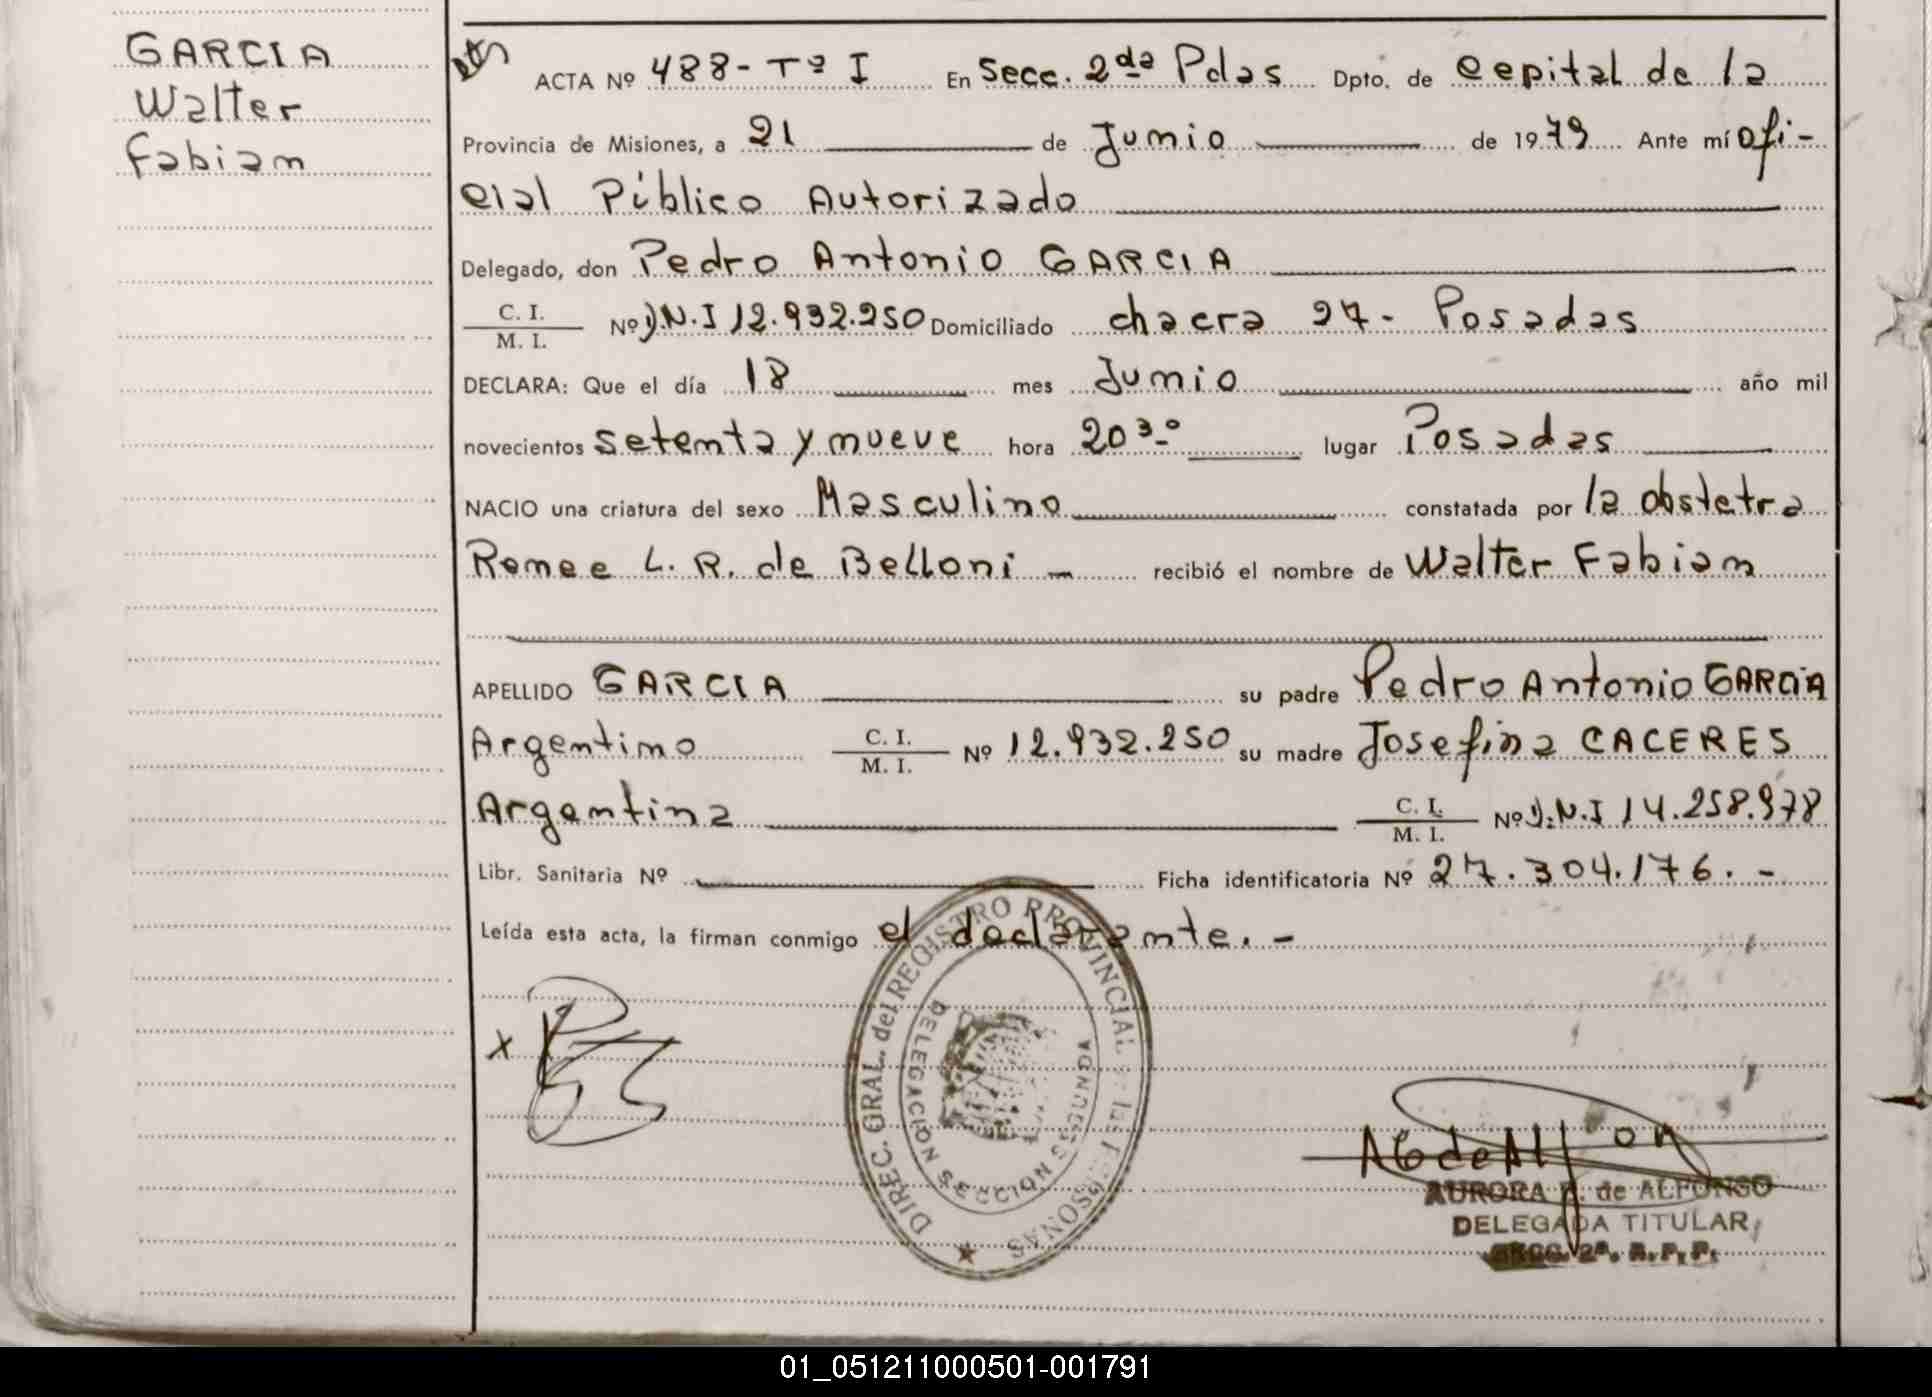 GARCIA
Walter
Fabian
ACTA Nº 488 - Tº I En Secc. 2da Pdas Dpto. de Capital de la
Provincia de Misiones, a 21 de Junio de 1979 Ante mí ofi-
cial Público Autorizado
Delegado, don Pedro Antonio GARCIA
C. I.
M. I. Nº D.N.I 12.932.250 Domiciliado chacra 27 - Posadas
DECLARA: Que el día 18 mes Junio año mil
novecientos setenta y nueve hora 20 30 lugar Posadas
NACIO una criatura del sexo Masculino constatada por la obstetra
Renee L. R. de Belloni - recibió el nombre de Walter Fabian
APELLIDO GARCIA su padre Pedro Antonio GARCIA
Argentino C. I.
M. I. Nº 12.932.250 su madre Josefina CACERES
Argentina C. I.
M. I. Nº D.N.I 14.258.978
Libr. Sanitaria Nº Ficha identificatoria Nº 27.304.176. -
Leída esta acta, la firman conmigo el declarante. -
DIREC. GRAL. del REGISTRO PROVINCIAL de las PERSONAS
DELEGACION SECCION SEGUNDA
x
AURORA de ALFONSO
DELEGADA TITULAR
SECC. 2ª. R. P. P.
01_051211000501-001791